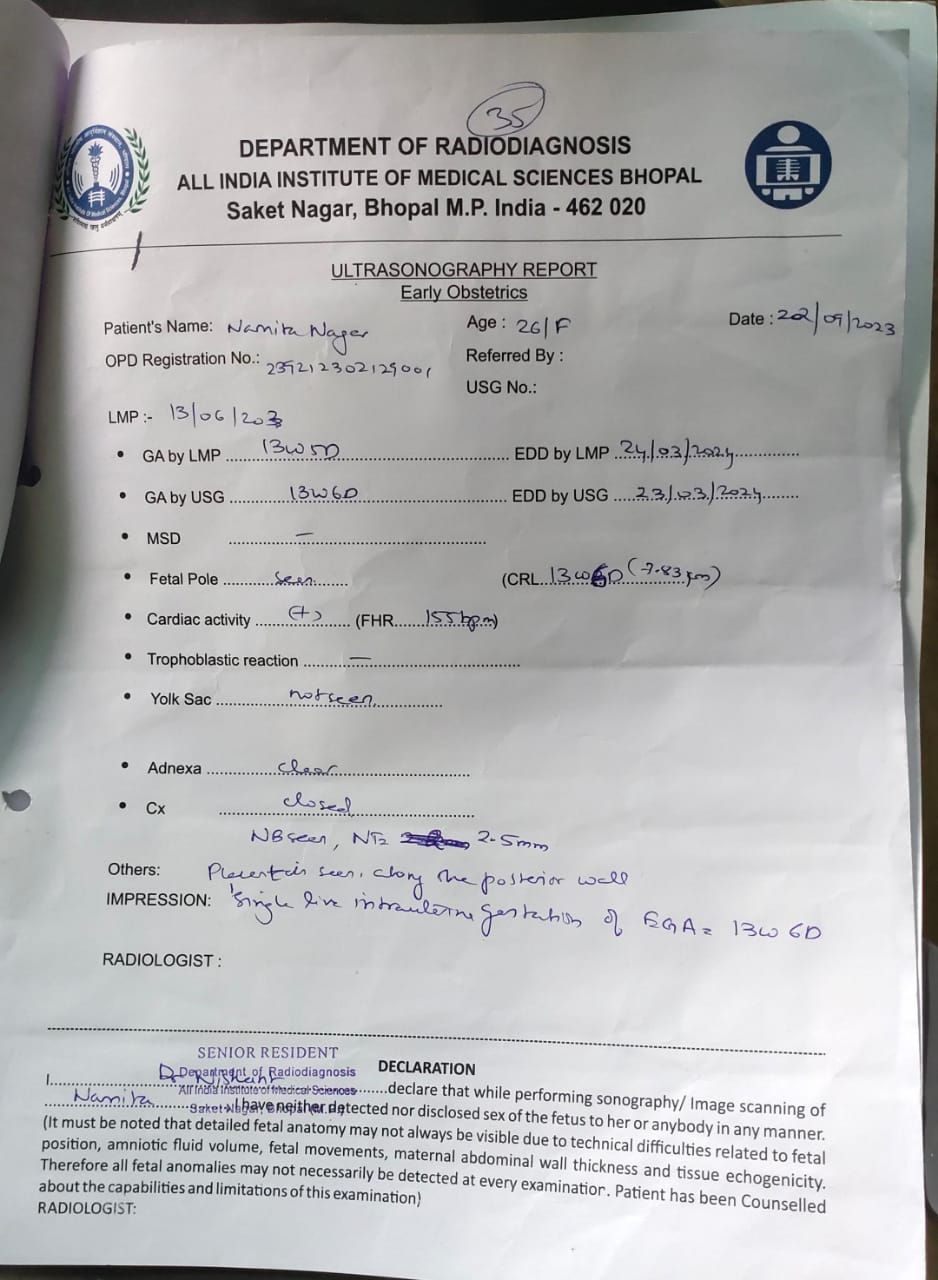 35
DEPARTMENT OF RADIODIAGNOSIS
ALL INDIA INSTITUTE OF MEDICAL SCIENCES BHOPAL
Saket Nagar, Bhopal M.P. India - 462 020
ULTRASONOGRAPHY REPORT
Early Obstetrics
Patient's Name: Namita Nagar Age : 26/F Date : 22/09/2023
OPD Registration No.: Referred By :
USG No.:
LMP :- 13/06/2023
• GA by LMP ..... 13W5D ..... EDD by LMP ..24/03/2024.....
• GA by USG ..... 13W6D ..... EDD by USG ....23/03/2024.....
• MSD ..... – .....
• Fetal Pole ..... seen ..... (CRL..13W6D (7.83 cm)
• Cardiac activity ..... (+) ..... (FHR.....155bpm)
• Trophoblastic reaction ..... – .....
• Yolk Sac ..... not seen .....
• Adnexa ..... clear .....
• Cx ..... closed .....
NB seen, NT= 2.5mm
Others: Placenta is seen along the posterior wall
IMPRESSION: Single live intrauterine gestation of EGA= 13W 6D
RADIOLOGIST :
SENIOR RESIDENT
Department of Radiodiagnosis
All India Institute of Medical Sciences
Saket Nagar, Bhopal
DECLARATION
I..... Dr Nishant .....declare that while performing sonography/ Image scanning of
..... Namita .....I have neither detected nor disclosed sex of the fetus to her or anybody in any manner.
(It must be noted that detailed fetal anatomy may not always be visible due to technical difficulties related to fetal
position, amniotic fluid volume, fetal movements, maternal abdominal wall thickness and tissue echogenicity.
Therefore all fetal anomalies may not necessarily be detected at every examination. Patient has been Counselled
about the capabilities and limitations of this examination)
RADIOLOGIST: